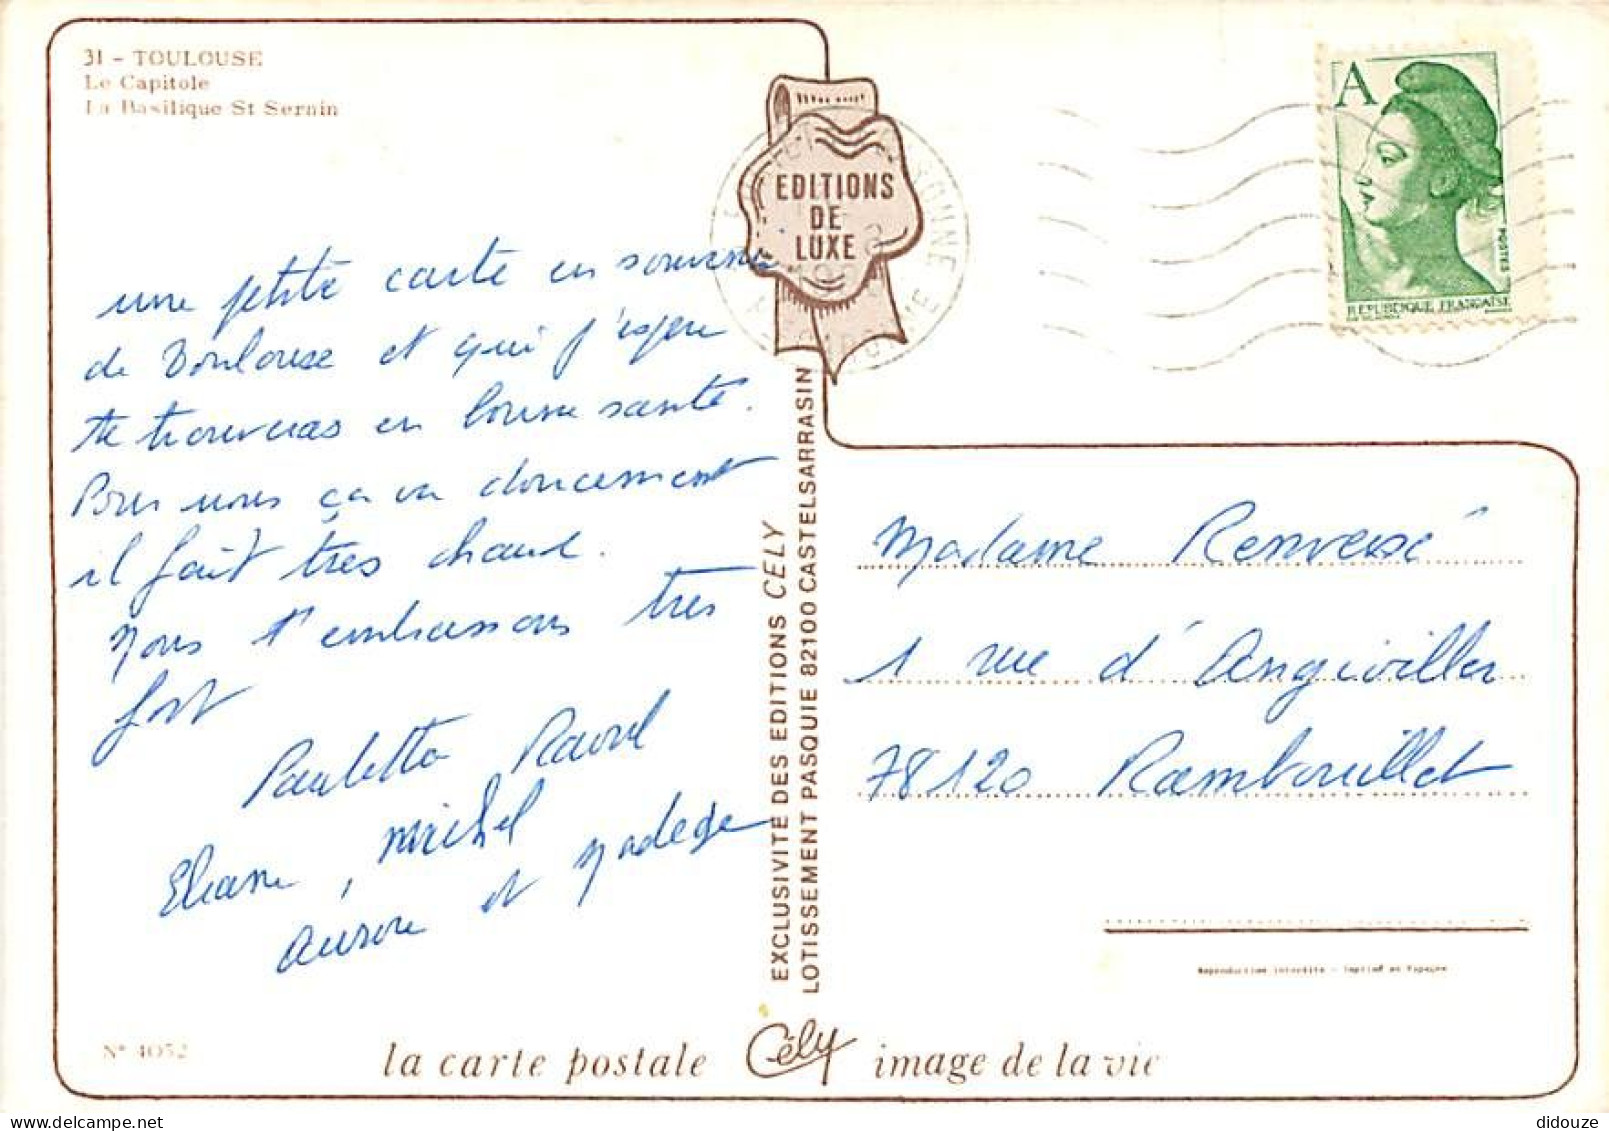 31 - TOULOUSE
Le Capitole
La Basilique St Sernin
EDITIONS
DE
LUXE
A
POSTES
REPUBLIQUE FRANÇAISE
une petite carte en souvenir
de Toulouse et qui j'espère
te trouveras en bonne santé.
Pour nous ça va doucement
il fait très chaud.
Nous t'embrassons très
fort
Paulette Raoul
Eliane, Michel
Aurore et Nadege
EXCLUSIVITE DES EDITIONS CELY
LOTISSEMENT PASQUIE 82100 CASTELSARRASIN
Madame Renversé
1 rue d'Angiviller
78120 Rambouillet
Reproduction interdite - Imprimé en Espagne
N° 4052
la carte postale Cély image de la vie
didouze